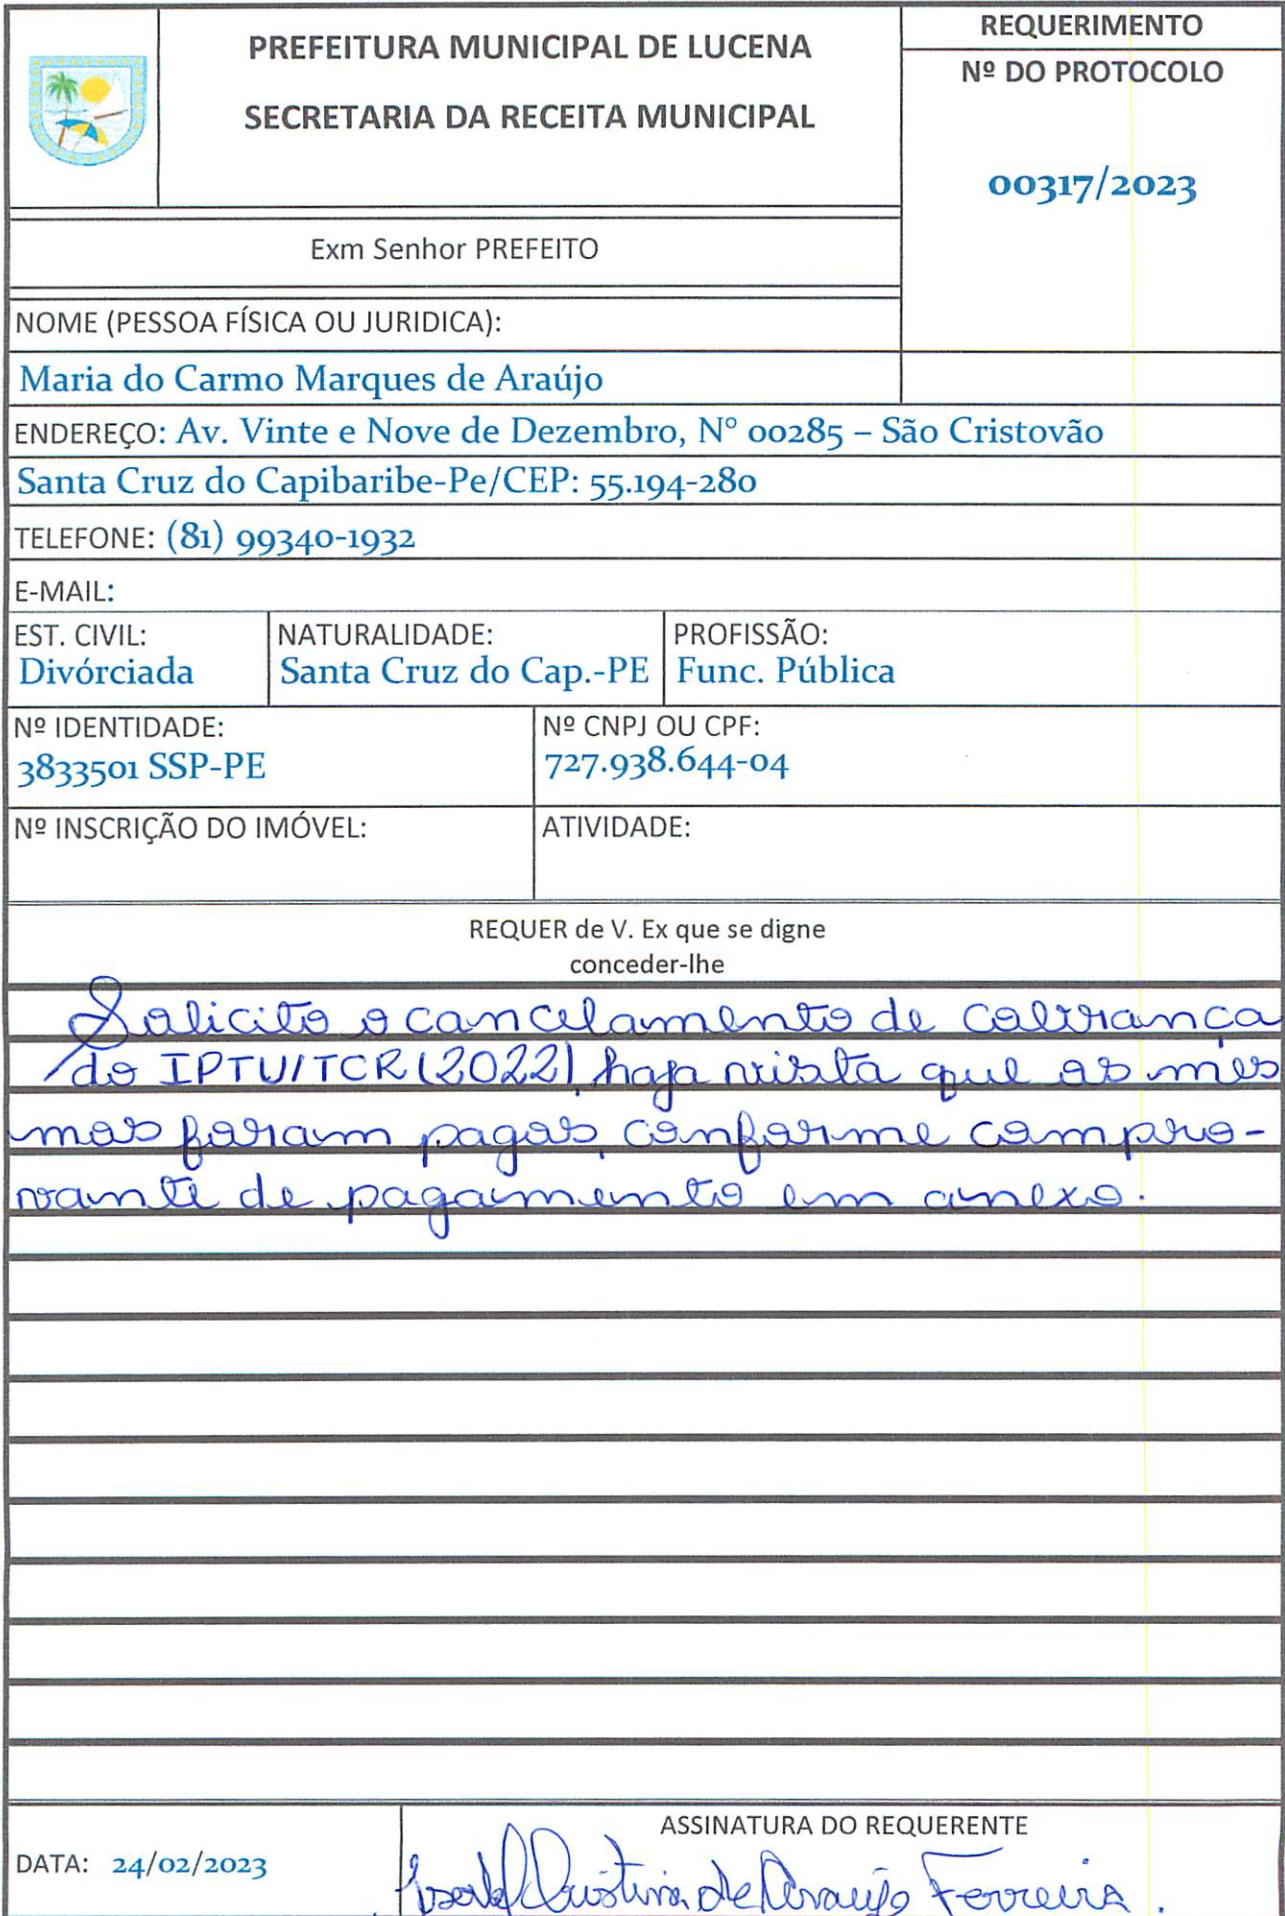 PREFEITURA MUNICIPAL DE LUCENA
SECRETARIA DA RECEITA MUNICIPAL
REQUERIMENTO
Nº DO PROTOCOLO
00317/2023
Exm Senhor PREFEITO
NOME (PESSOA FÍSICA OU JURIDICA):
Maria do Carmo Marques de Araújo
ENDEREÇO: Av. Vinte e Nove de Dezembro, N° 00285 – São Cristovão
Santa Cruz do Capibaribe-Pe/CEP: 55.194-280
TELEFONE: (81) 99340-1932
E-MAIL:
EST. CIVIL:
Divórciada
NATURALIDADE:
Santa Cruz do Cap.-PE
PROFISSÃO:
Func. Pública
Nº IDENTIDADE:
3833501 SSP-PE
Nº CNPJ OU CPF:
727.938.644-04
Nº INSCRIÇÃO DO IMÓVEL:
ATIVIDADE:
REQUER de V. Ex que se digne
conceder-lhe
Solicito o cancelamento de cobrança
do IPTU/TCR (2022), haja vista que os mes
mos foram pagos, conforme compro-
vante de pagamento em anexo.
DATA: 24/02/2023
ASSINATURA DO REQUERENTE
Isabel Cristina de Araujo Ferreira.